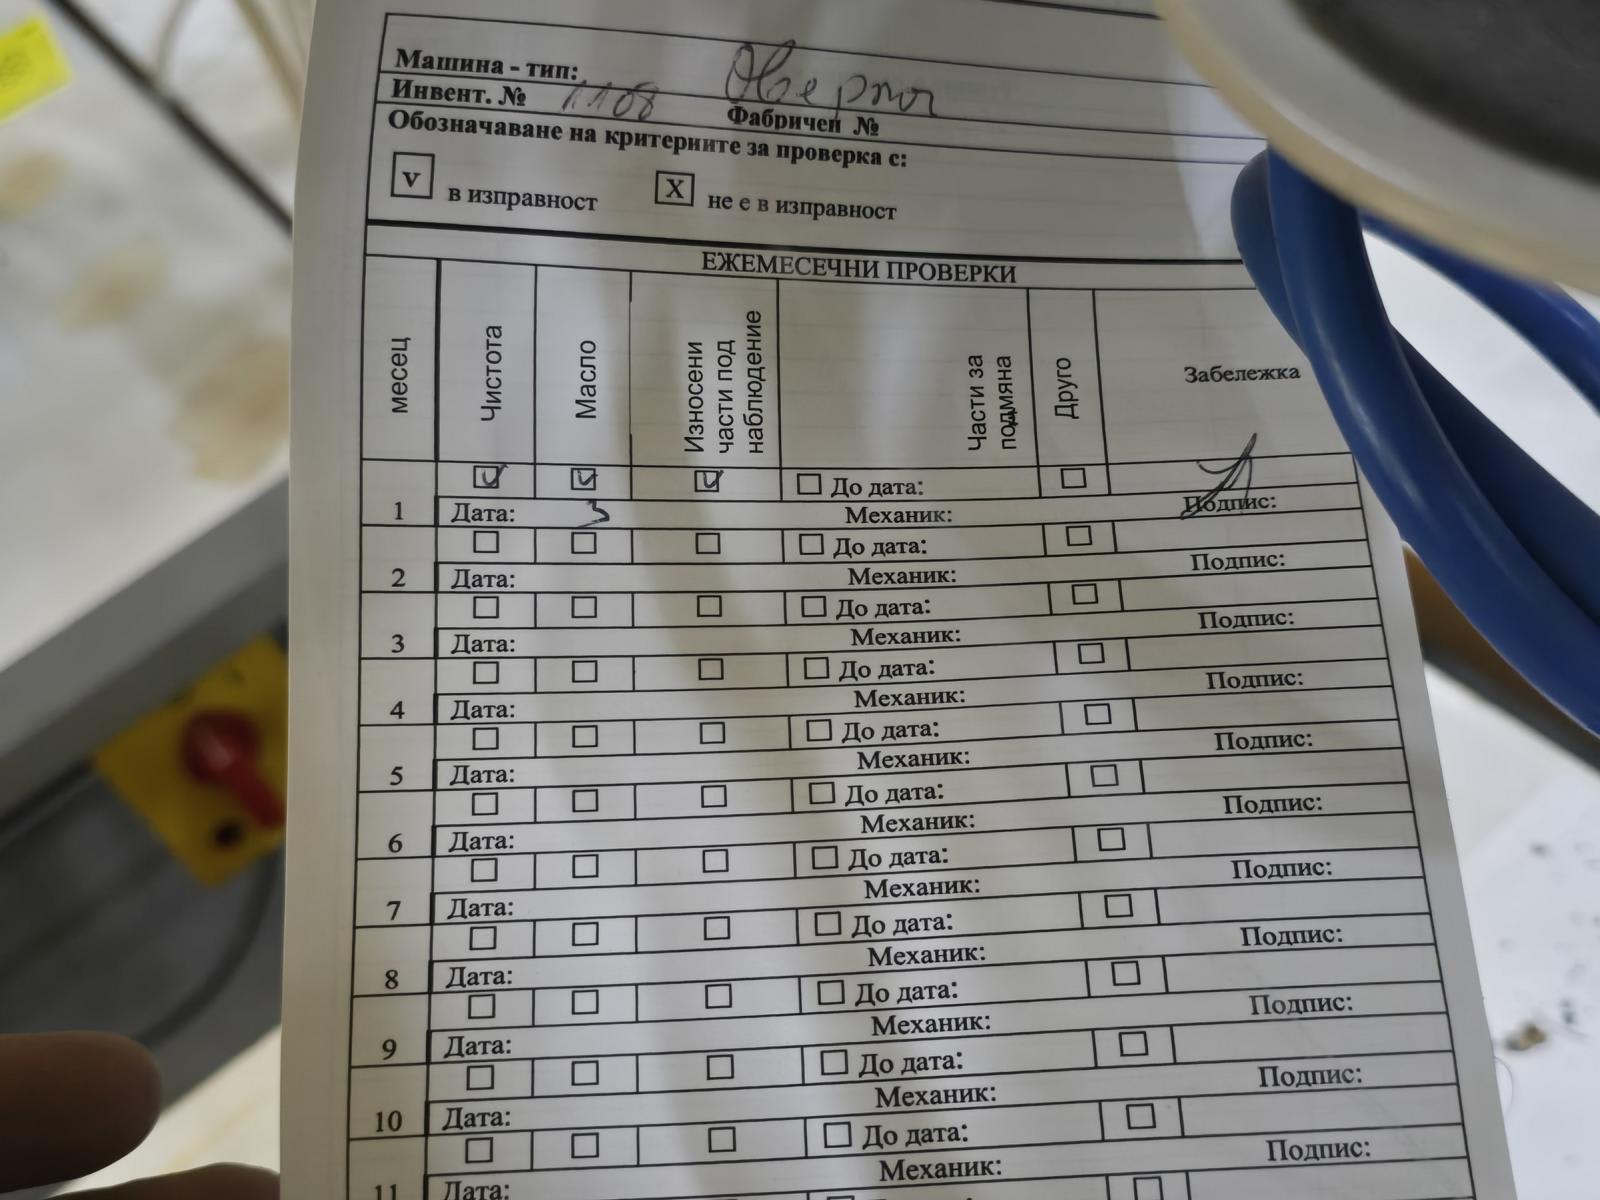 Машина - тип: Оверлог
Инвент. № 1108 Фабричен №
Обозначаване на критериите за проверка с:
v в изправност X не е в изправност
ЕЖЕМЕСЕЧНИ ПРОВЕРКИ
месец Чистота Масло Износени части под наблюдение Части за подмяна Друго Забележка
До дата:
1 Дата: 3 Механик: Подпис:
До дата:
2 Дата: Механик: Подпис:
До дата:
3 Дата: Механик: Подпис:
До дата:
4 Дата: Механик: Подпис:
До дата:
5 Дата: Механик: Подпис:
До дата:
6 Дата: Механик: Подпис:
До дата:
7 Дата: Механик: Подпис:
До дата:
8 Дата: Механик: Подпис:
До дата:
9 Дата: Механик: Подпис:
До дата:
10 Дата: Механик: Подпис:
До дата:
11 Дата: Механик: Подпис: